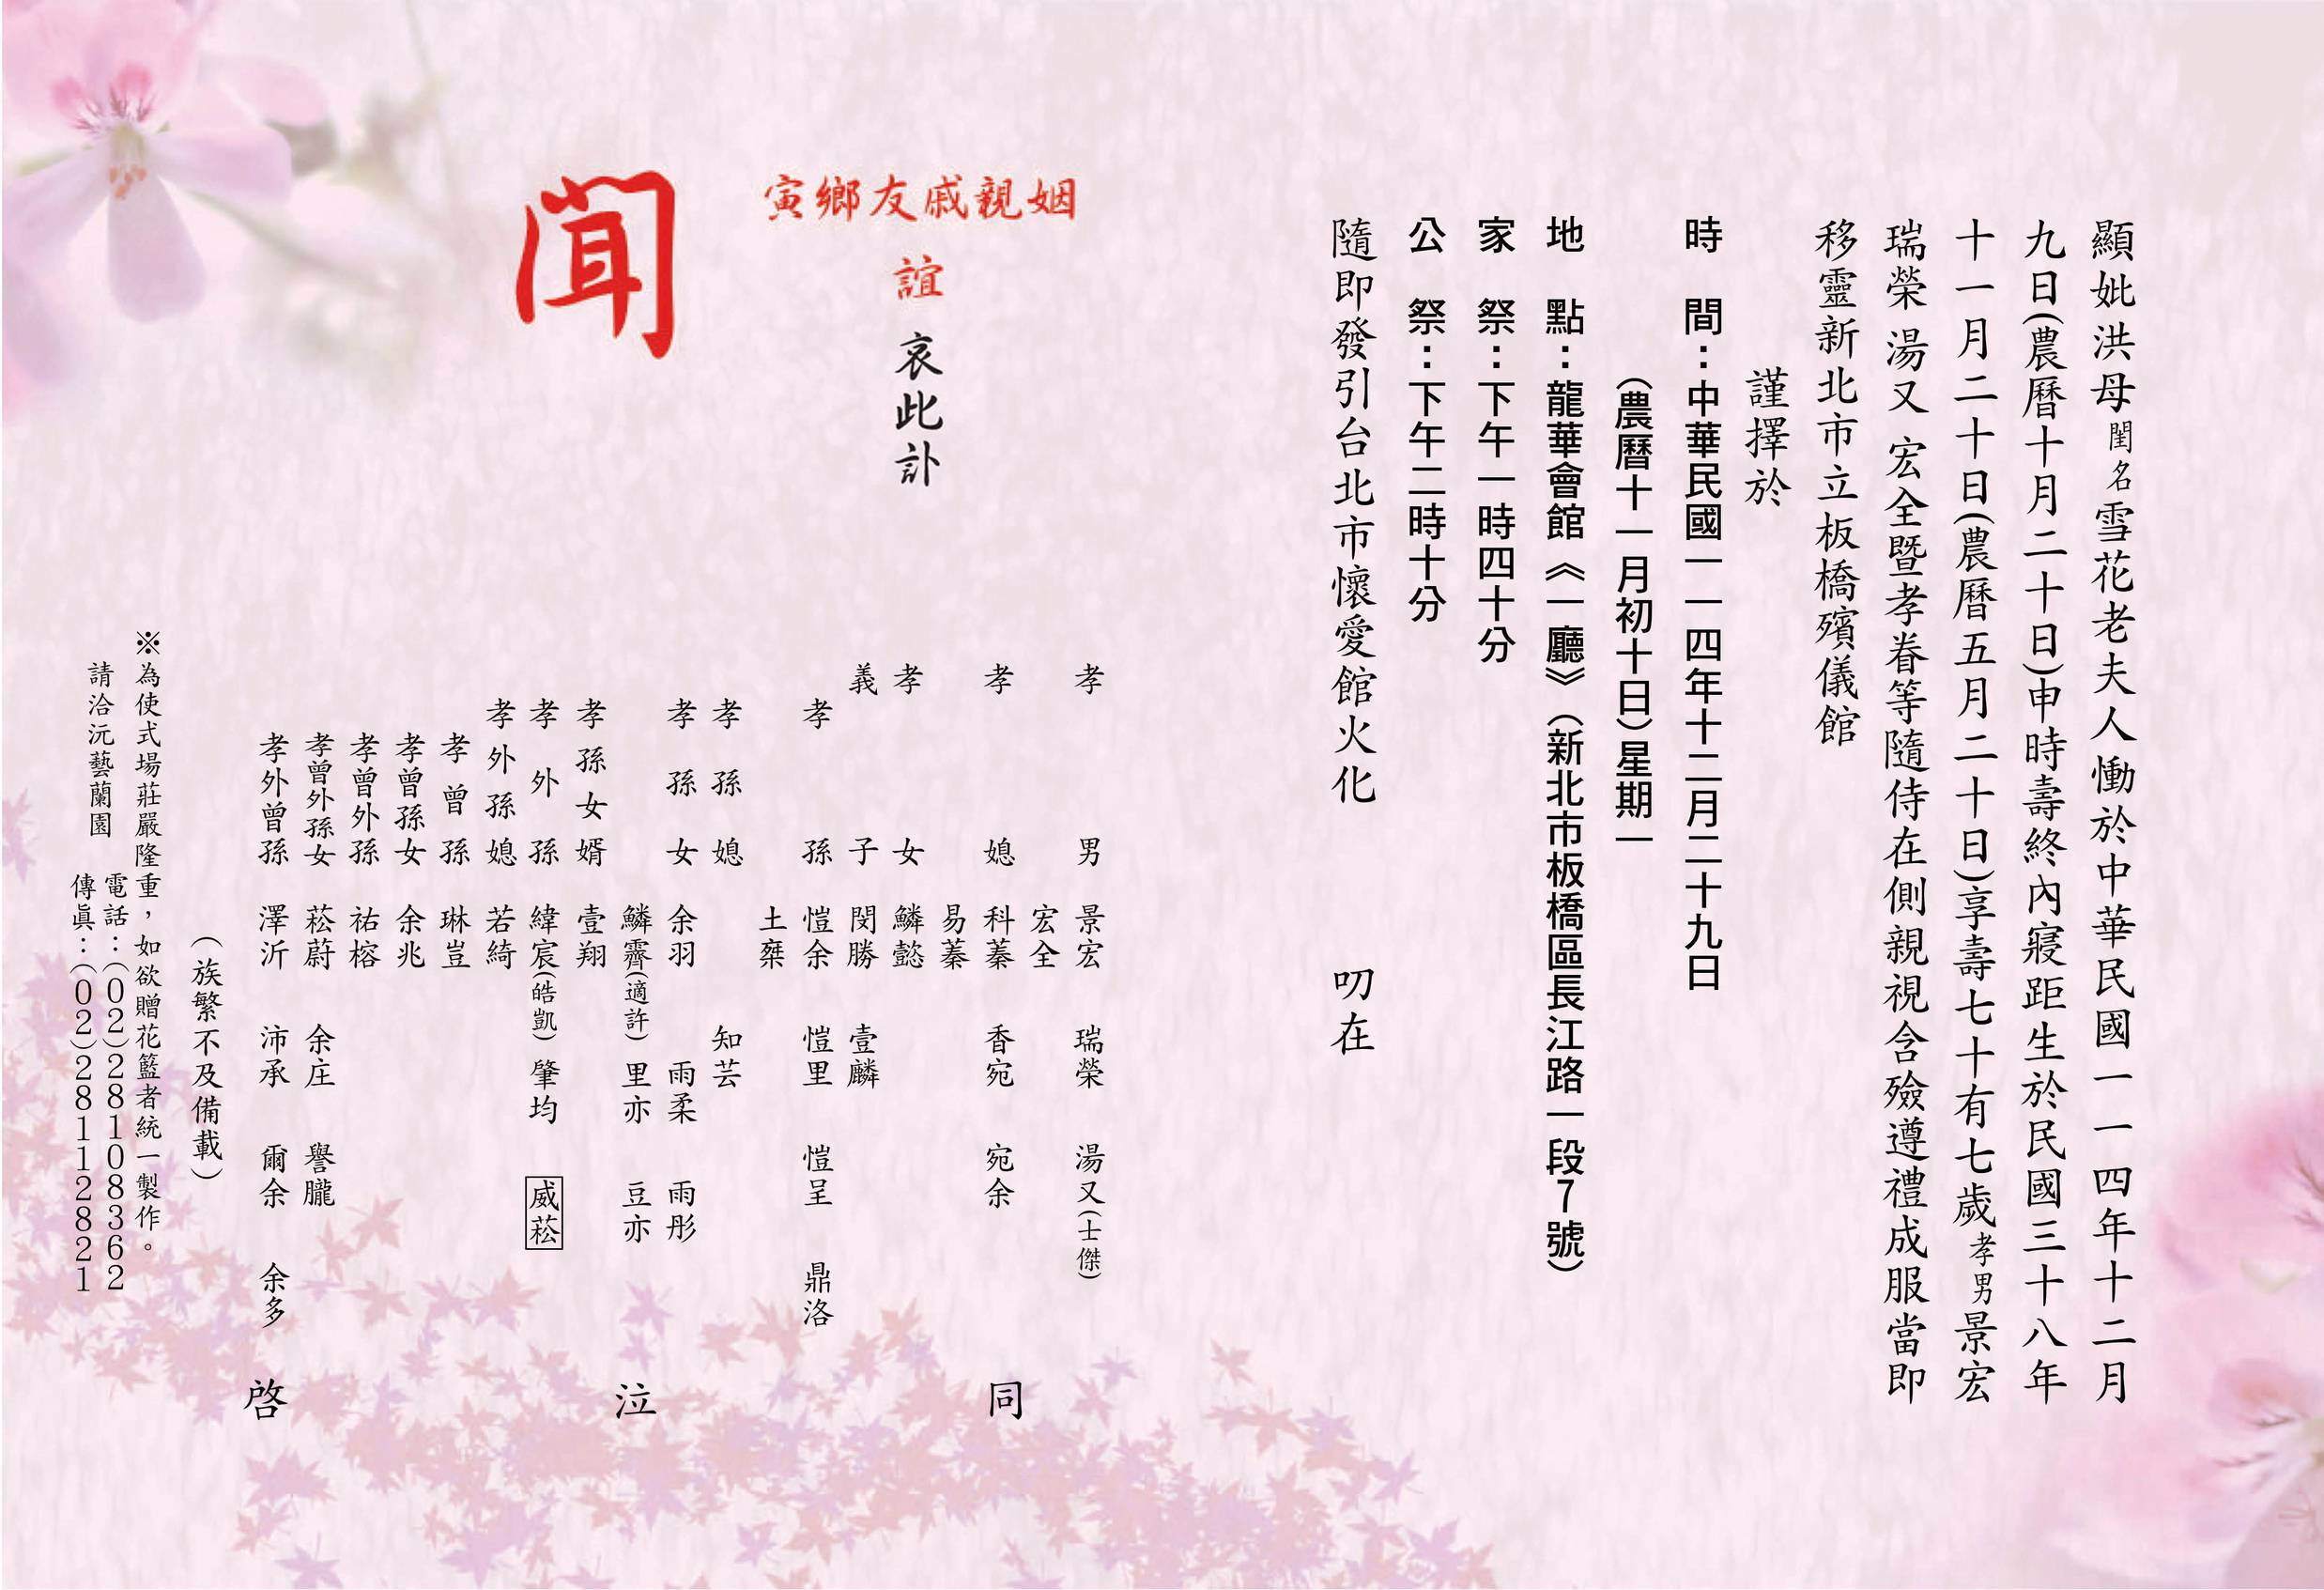 顯妣洪母閨名雪花老夫人慟於中華民國一一四年十二月
九日(農曆十月二十日)申時壽終內寢距生於民國三十八年
十一月二十日(農曆五月二十日)享壽七十有七歲孝男景宏
瑞榮 湯又 宏全暨孝眷等隨侍在側親視含殮遵禮成服當即
移靈新北市立板橋殯儀館
謹擇於
時 間:中華民國一一四年十二月二十九日
(農曆十一月初十日)星期一
地 點:龍華會館《一廳》(新北市板橋區長江路一段7號)
家 祭:下午一時四十分
公 祭:下午二時十分
隨即發引台北市懷愛館火化 叨在
姻親戚友鄉寅
誼 哀此訃
聞
孝男 景宏 瑞榮 湯又(士傑)
宏全
孝媳 科蓁 香宛 宛余
易蓁
孝女 鱗懿
義子 閔勝 壹麟
孝孫 愷余 愷里 愷呈 鼎洛
土橤
孝孫媳 知芸
孝孫女 余羽 雨柔 雨彤
鱗霽(適許) 里亦 豆亦
孝孫女婿 壹翔
孝外孫 緯宸(皓凱) 肇均 威菘
孝外孫媳 若綺
孝曾孫 琳豈
孝曾孫女 余兆
孝曾外孫 祐榕
孝曾外孫女 菘蔚 余庄 譽朧
孝外曾孫 澤沂 沛承 爾余 余多
同 泣 啓
(族繁不及備載)
※為使式場莊嚴隆重,如欲贈花籃者統一製作。
請洽沅藝蘭園 電話:(02)28108362
傳真:(02)28112821